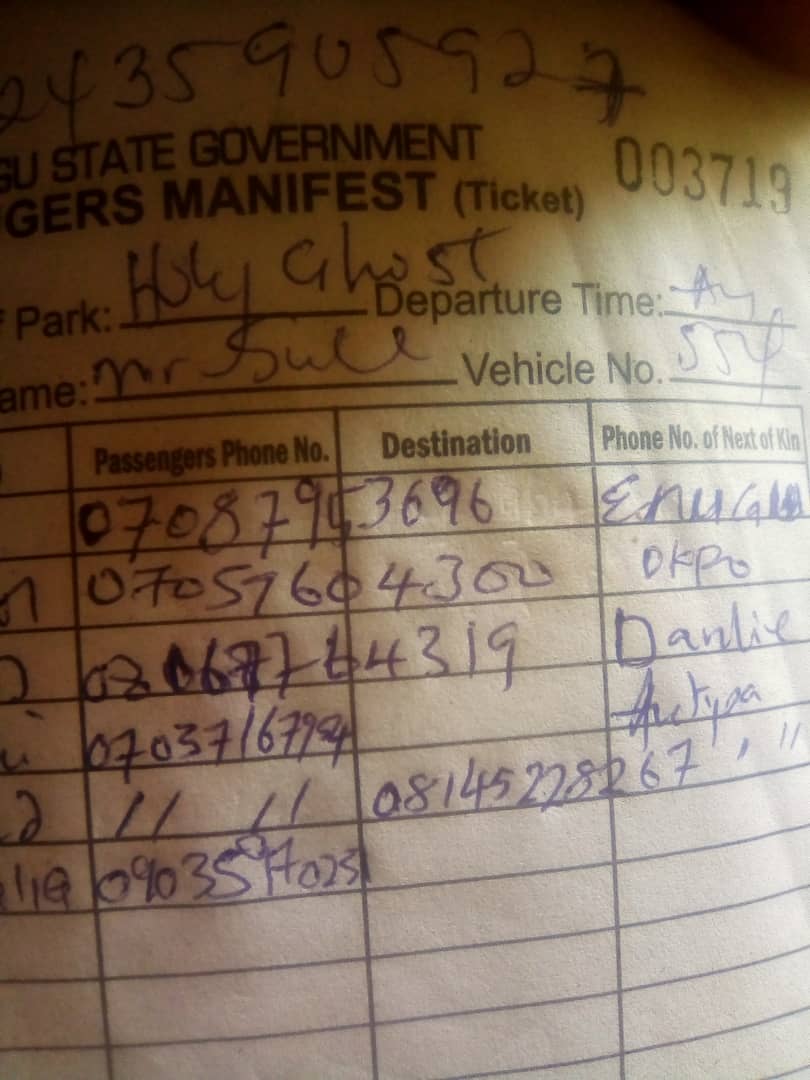 2435905927
GU STATE GOVERNMENT
GERS MANIFEST (Ticket) 003719
Park: Holy Ghost Departure Time:
ame: Mr Vehicle No.
Passengers Phone No. Destination Phone No. of Next of Kin
07087953696 Enugu
07057604300 Okpo
64319 Danlie
0703716799
// // 08145228267 , //